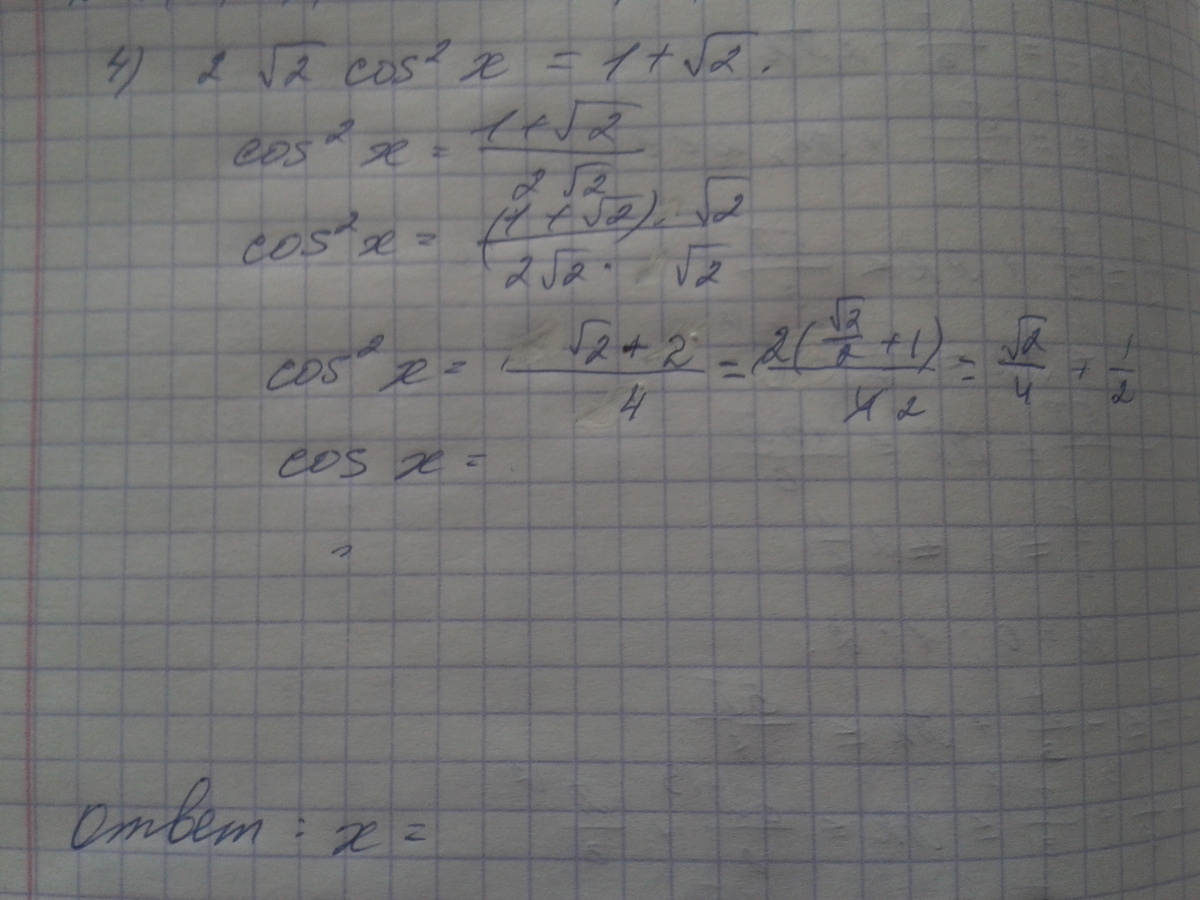 4) 2 √2 cos² x = 1 + √2.
cos² x = (1+√2)/(2 √2)
cos² x = ((1 + √2) · √2)/(2 √2 · √2)
cos² x = (√2 + 2)/4 = (2(√2/2 + 1))/(4 2) = √2/4 + 1/2
cos x =
Ответ : x =